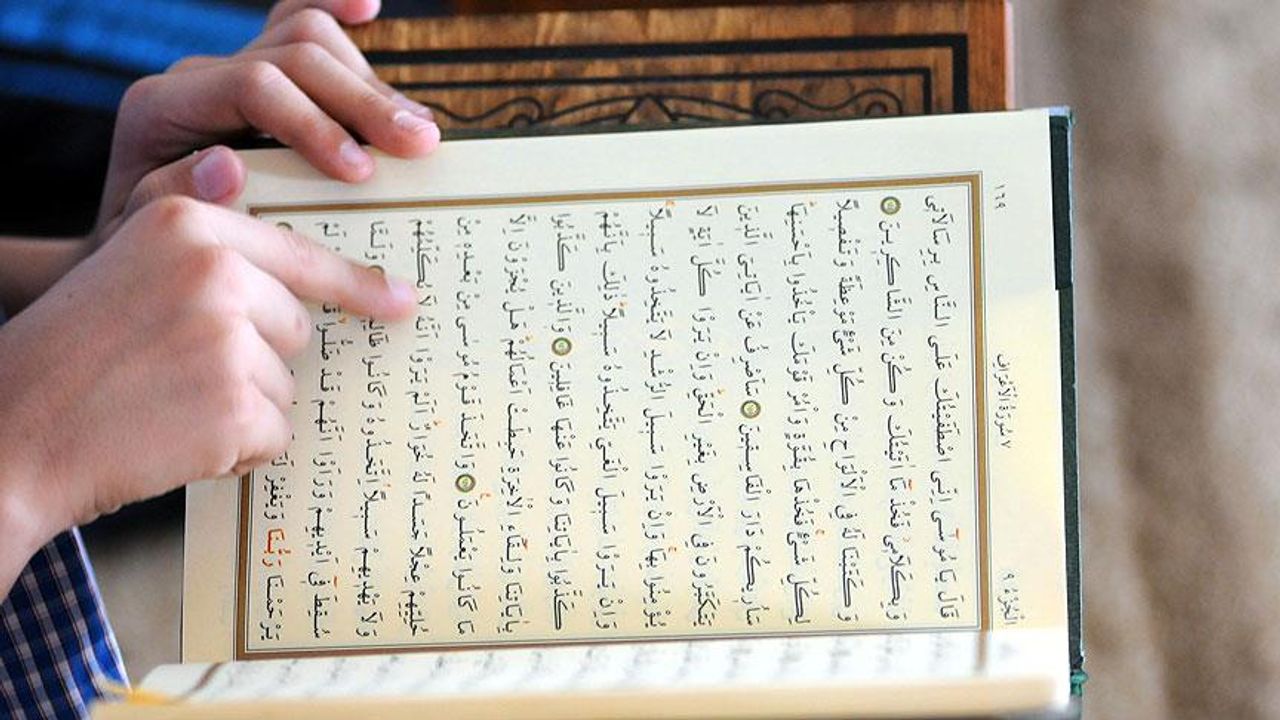 الْجُزْءُ ٩ ٧ سُورَةُ الْاَعْرَافِ ١٦٩
قَالَ يَا مُوسٰٓى اِنِّي اصْطَفَيْتُكَ عَلَى النَّاسِ بِرِسَالَاتِي
وَبِكَلَامِي فَخُذْ مَٓا اٰتَيْتُكَ وَكُنْ مِنَ الشَّاكِرِينَ
وَكَتَبْنَا لَهُ فِي الْاَلْوَاحِ مِنْ كُلِّ شَيْءٍ مَوْعِظَةً وَتَفْصِيلًا
لِكُلِّ شَيْءٍ فَخُذْهَا بِقُوَّةٍ وَأْمُرْ قَوْمَكَ يَأْخُذُوا بِاَحْسَنِهَا
سَاُرِيكُمْ دَارَ الْفَاسِقِينَ سَاَصْرِفُ عَنْ اٰيَاتِيَ الَّذِينَ
يَتَكَبَّرُونَ فِي الْاَرْضِ بِغَيْرِ الْحَقِّ وَاِنْ يَرَوْا كُلَّ اٰيَةٍ لَا
يُؤْمِنُوا بِهَا وَاِنْ يَرَوْا سَبِيلَ الرُّشْدِ لَا يَتَّخِذُوهُ سَبِيلًا
وَاِنْ يَرَوْا سَبِيلَ الْغَيِّ يَتَّخِذُوهُ سَبِيلًا ذٰلِكَ بِاَنَّهُمْ
كَذَّبُوا بِاٰيَاتِنَا وَكَانُوا عَنْهَا غَافِلِينَ وَالَّذِينَ كَذَّبُوا
بِاٰيَاتِنَا وَلِقَٓاءِ الْاٰخِرَةِ حَبِطَتْ اَعْمَالُهُمْ هَلْ يُجْزَوْنَ اِلَّا
مَا كَانُوا يَعْمَلُونَ وَاتَّخَذَ قَوْمُ مُوسٰى مِنْ بَعْدِهِ مِنْ
حُلِيِّهِمْ عِجْلًا جَسَدًا لَهُ خُوَارٌ اَلَمْ يَرَوْا اَنَّهُ لَا يُكَلِّمُهُمْ
وَلَا يَهْدِيهِمْ سَبِيلًا اِتَّخَذُوهُ وَكَانُوا ظَالِمِينَ وَلَمَّا
سُقِطَ فِٓي اَيْدِيهِمْ وَرَاَوْا اَنَّهُمْ قَدْ ضَلُّوا لَمْ
يَرْحَمْنَا رَبُّنَا وَيَغْفِرْ